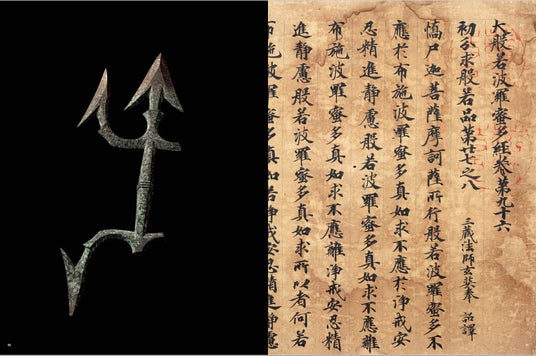 大般若波羅蜜多經卷第九十六
初分求般若品第廿七之八　三藏法師玄奘奉　詔譯
憍尸迦菩薩摩訶薩所行般若波羅蜜多不
應於布施波羅蜜多真如求不應於淨戒安
忍精進靜慮般若波羅蜜多真如求不應離
布施波羅蜜多真如求不應離淨戒安忍精
進靜慮般若波羅蜜多真如求所以者何若
布施波羅蜜多真如若淨戒安忍精進靜慮